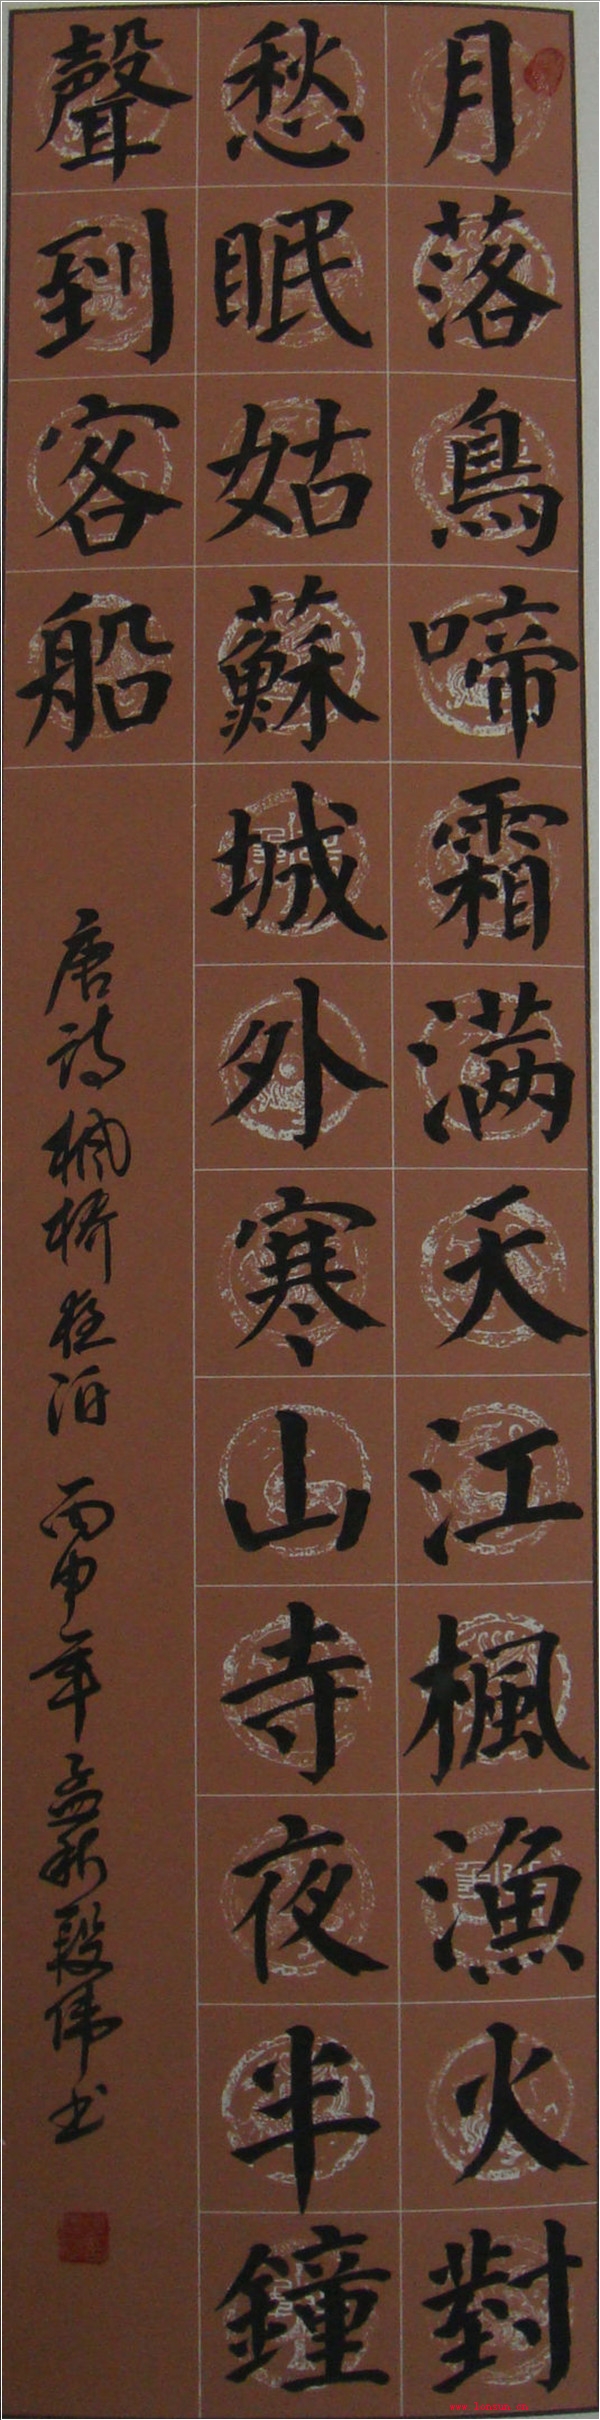 月落鳥啼霜满天江楓漁火對
愁眠姑蘇城外寒山寺夜半鐘
聲到客船
唐诗枫桥夜泊 丙申年孟秋段伟书